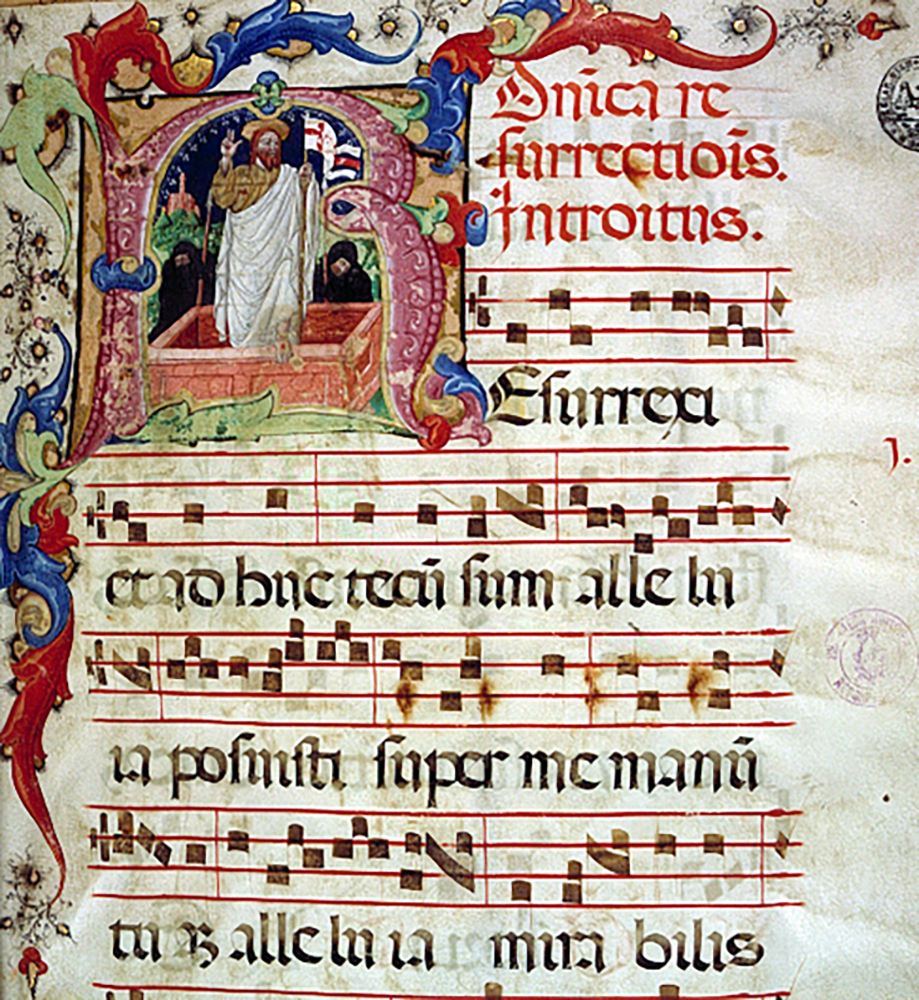 Dnica re
surrectiois.
Introitus.
Esurrexi
et ad huc tecū sum alle lu
ia posuisti super me manū
tu B alle lu ia mira bilis
J.